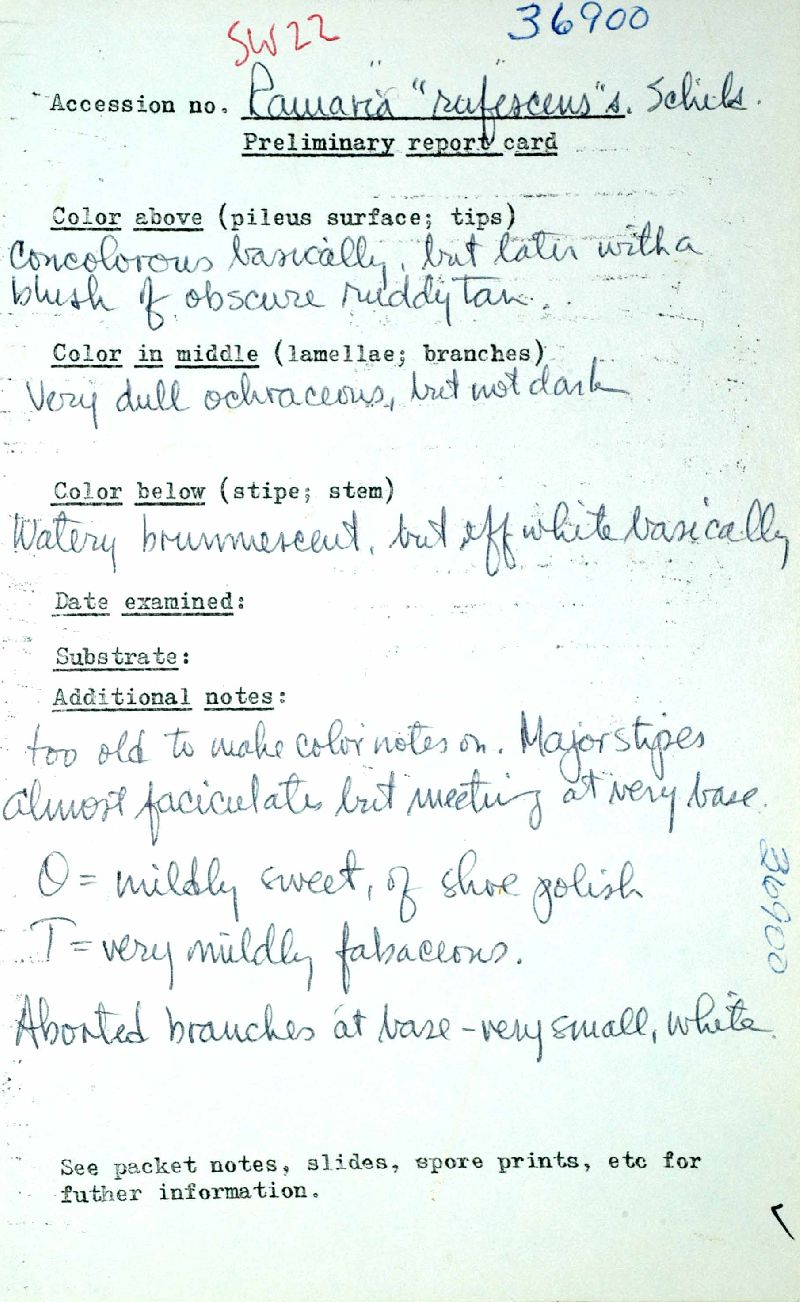 SW22
36900
Accession no. Ramaria "rufescens" s. Schild.
Preliminary report card
Color above (pileus surface; tips)
Concolorous basically, but later with a
blush of obscure ruddy tan.
Color in middle (lamellae; branches)
Very dull ochraceous, but not dark
Color below (stipe; stem)
Watery brunnescent, but off white basically
Date examined:
Substrate:
Additional notes:
too old to make color notes on. Major stipes
almost faciculate but meeting at very base.
O = mildly sweet, of shoe polish
T = very mildly fabaceous.
36900
Aborted branches at base - very small, white.
See packet notes, slides, spore prints, etc for
futher information.